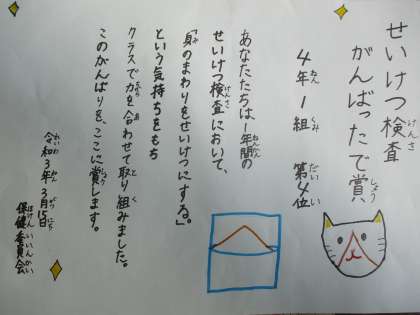 せいけつ検査
がんばったで賞
4年1組 第4位
あなたたちは1年間の
せいけつ検査において、
「身のまわりをせいけつにする。」
という気持ちをもち
クラスで力を合わせて取り組みました。
このがんばりを、ここに賞します。
令和3年3月15日
保健委員会